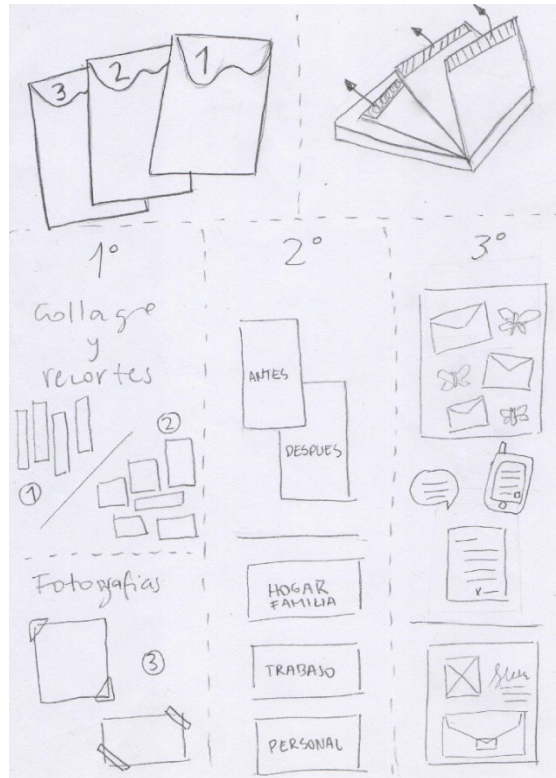 3
2
1
1º
Collage
y
recortes
1
2
Fotografias
3
2º
ANTES
DESPUES
HOGAR
FAMILIA
TRABAJO
PERSONAL
3º